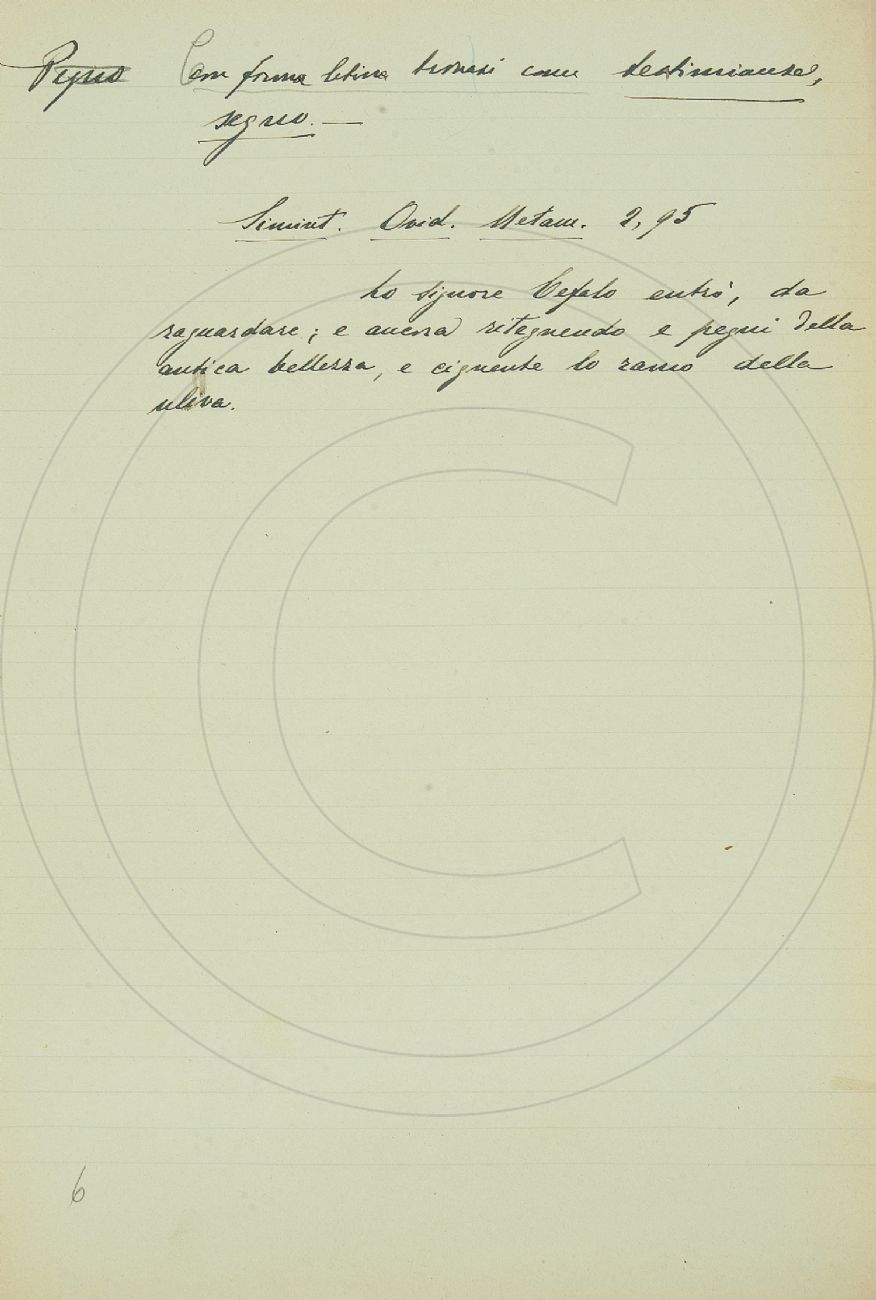 Pegno Con forma latina trovasi come testimianza,
segno. —
Simint. Ovid. Metam. 2, 95
Lo signore Cefalo entrò, da
raguardare; e ancora ritegnendo e pegni della
antica bellezza, e cignente lo ramo della
uliva.
6